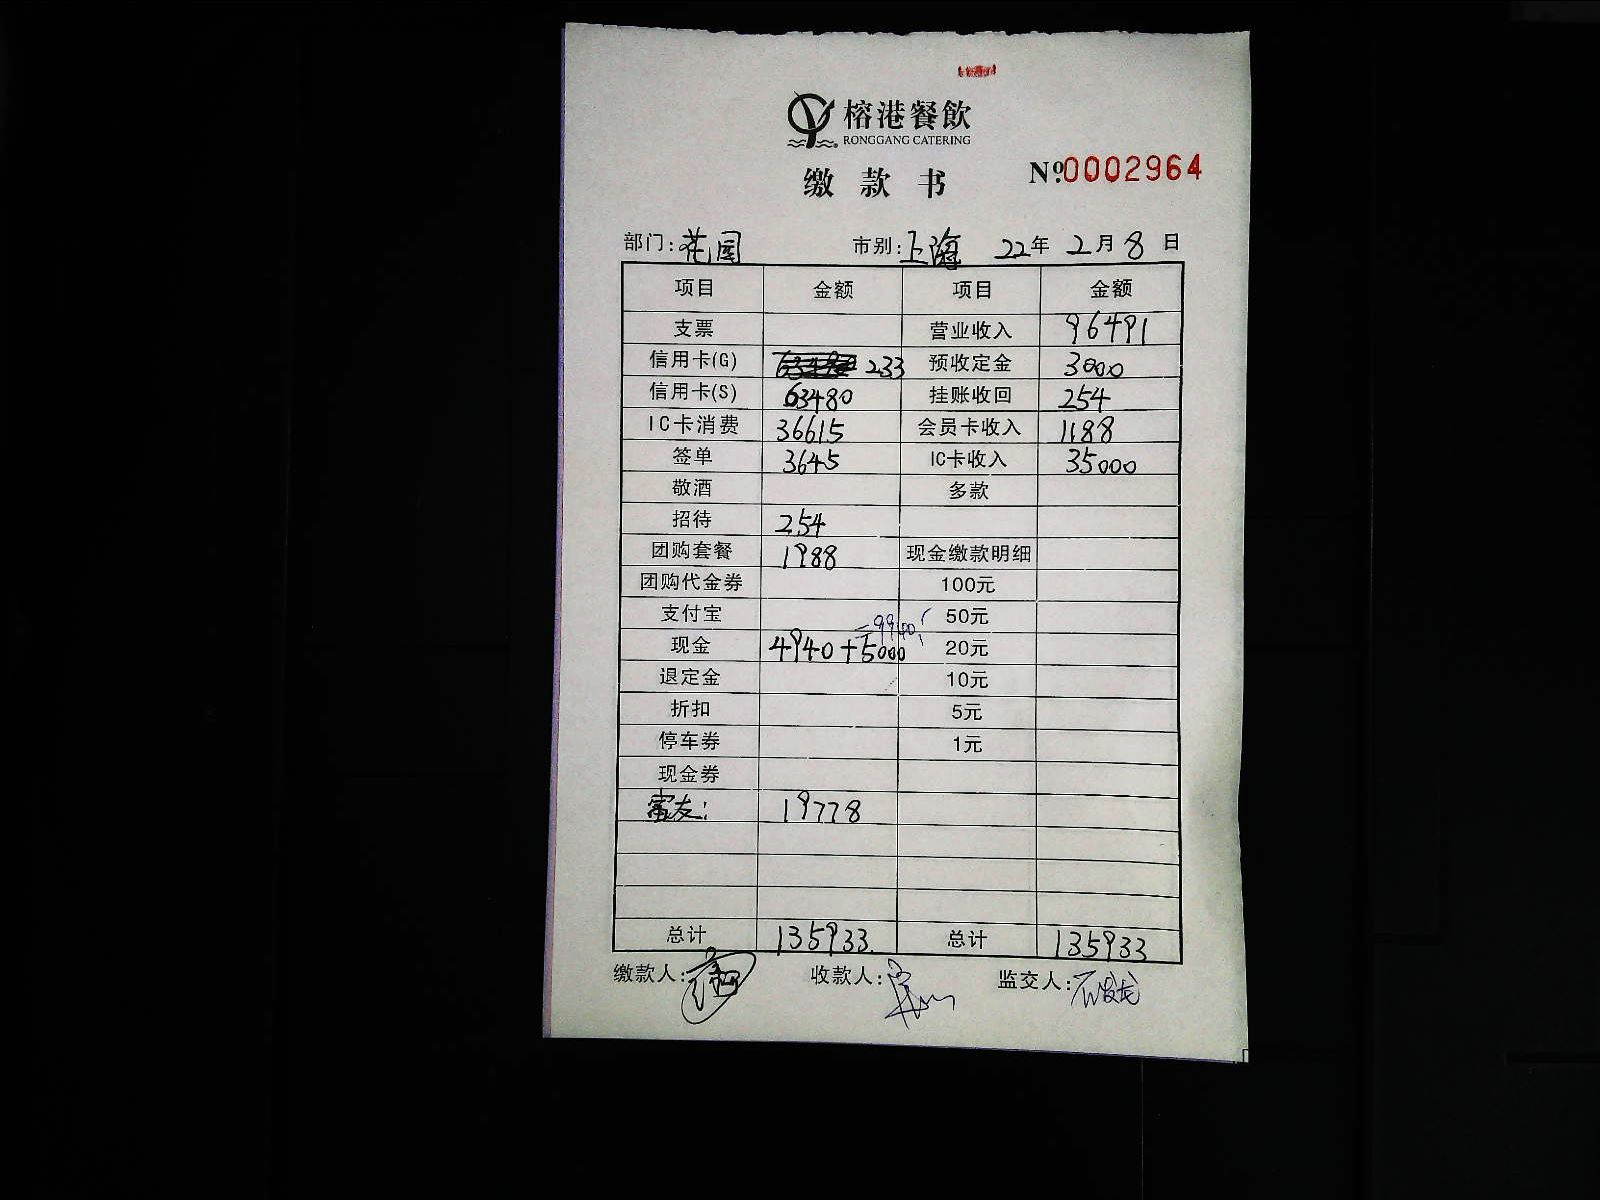 榕港餐飲
RONGGANG CATERING
缴款书 №0002964
部门:花园 市别:上海 22年 2月 8日
项目 金额 项目 金额
支票 营业收入 96491
信用卡(G) 233 预收定金 3000
信用卡(S) 63480 挂账收回 254
IC卡消费 36615 会员卡收入 1188
签单 3645 IC卡收入 35000
敬酒 多款
招待 254
团购套餐 1988 现金缴款明细
团购代金券 100元
支付宝 50元
=9940
现金 4940+5000 20元
退定金 10元
折扣 5元
停车券 1元
现金券
19778
总计 135933 总计 135933
缴款人: 收款人: 监交人: